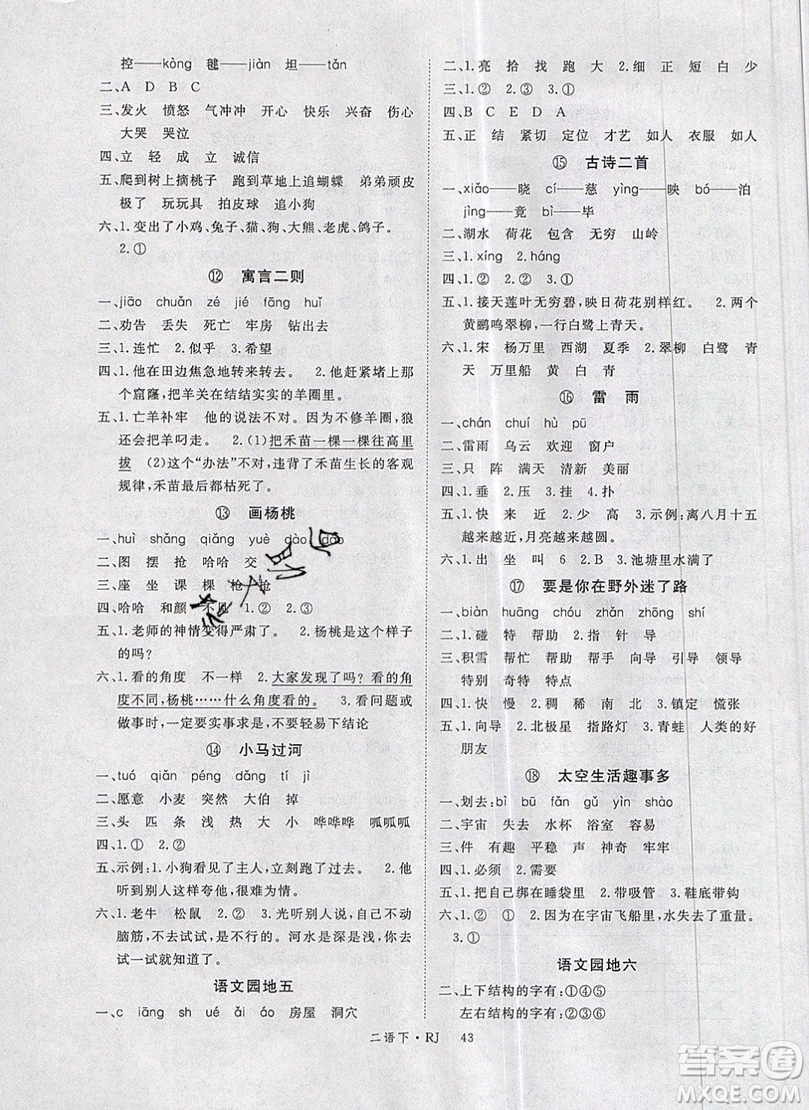 控——kòng　毽——jiàn　坦——tǎn
二、A　D　B　C
三、发火　愤怒　气冲冲　开心　快乐　兴奋　伤心
大哭　哭泣
四、立　轻　成立　诚信
五、爬到树上摘桃子　跑到草地上追蝴蝶　弟弟顽皮
极了　玩玩具　拍皮球　追小狗
六、1.变出了小鸡、兔子、猫、狗、大熊、老虎、鸽子。
2.①
⑫　寓言二则
一、jiāo　chuán　zé　jié　fāng　huǐ
二、劝告　丢失　死亡　牢房　钻出去
三、1.连忙　2.似乎　3.希望
四、1.他在田边焦急地转来转去。　2.他赶紧堵上那个
窟窿，把羊关在结结实实的羊圈里。
五、1.亡羊补牢　他的说法不对。因为不修羊圈，狼
还会把羊叼走。　2.(1)把禾苗一棵一棵往高里
拔　(2)这个“办法”不对，违背了禾苗生长的客观
规律，禾苗最后都枯死了。
⑬　画杨桃
一、huì　shǎng　qiǎng　yuè　dào　dāo
二、图　摆　抢　哈哈　交
三、座　坐　课　棵　枪　抢
四、哈哈　和颜　1.①　2.②
五、1.老师的神情变得严肃了。　2.杨桃是这个样子
的吗？
六、1.看的角度　不一样　2.大家发现了吗？看的角
度不同，杨桃……什么角度看的。　3.看问题或
做事时，一定要实事求是，不要轻易下结论
⑭　小马过河
一、tuó　qiǎn　péng　dǎng　tí　jì
二、愿意　小麦　突然　大伯　掉
三、头　匹　条　浅　热　大　哗哗哗　呱呱呱
四、1.①　2.②
五、示例：1.小狗看见了主人，立刻跑了过去。　2.他
听到别人这样夸他，很难为情。
六、1.老牛　松鼠　2.②　3.光听别人说，自己不动
脑筋，不去试试，是不行的。河水是深是浅，你去
试一试就知道了。
语文园地五
一、c　iāng　sh　ué　ǎi　áo　房屋　洞穴
二、1.亮　拾　找　跑　大　2.细　短　白　少
三、1.①②　2.①③
四、B　C　E　D　A
五、正　结　紧切　定位　才艺　如人　衣服　如人
⑮　古诗二首
一、xiǎo——晓　cí——慈　yìng——映　bó——泊
jìng——竟　bì——毕
二、湖水　荷花　包含　无穷　山岭
三、1.xíng　2.háng
四、1.②　①　2.②　①　②
五、1.接天莲叶无穷碧，映日荷花别样红。　2.两个
黄鹂鸣翠柳，一行白鹭上青天。
六、1.宋　杨万里　西湖　夏季　2.翠柳　白鹭　青
天　万里船　黄　白　青
⑯　雷　雨
一、chán　chuí　hù　pū
二、雷雨　乌云　欢迎　窗户
三、只　阵　满天　清新　美丽
四、1.垂　2.压　3.挂　4.扑
五、1.快　来　近　2.示例：离八月十五
越来越近，月亮越来越圆。
六、1.出　坐　叫　6　2.B　3.池塘里水满了
⑰　要是你在野外迷了路
一、biàn　huāng　chóu　zhǎn　zhōng　shí
二、1.碰　特　帮助　2.指　针　导
三、积雪　帮忙　帮助　帮手　向导　引导　领导
特别　奇特　特点
四、1.快　慢　2.稠　稀　南　北　3.镇定　慌张
五、1.向导　2.北极星　指路灯　3.青蛙　人类的好
朋友
⑱　太空生活趣事多
一、划去：bì　bū　fǎn　gǔ　yìn　shào
二、宇宙　失去　水杯　浴室　容易
三、件　有趣　平稳　声　神奇　牢牢
四、1.必须　2.需要
五、1.把自己绑在睡袋里　2.带吸管　3.鞋底带钩
六、1.②　①　2.因为在宇宙飞船里，水失去了重量。
3.①
语文园地六
二、上下结构的字有：①④⑤
左右结构的字有：②③⑥
二语下·RJ　43
答案圈
MXQE.COM